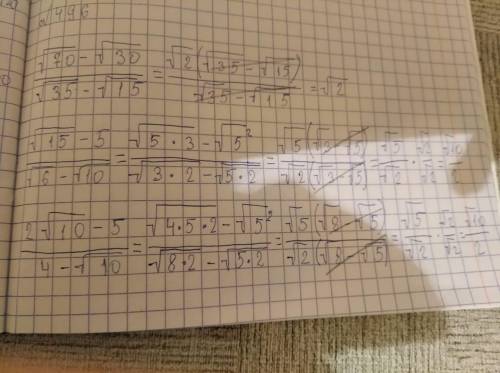 √496
(√70 - √30)/(√35 - √15) = √2(√35 - √15)/(√35 - √15) = √2
(√15 - 5)/(√6 - √10) = (√(5·3) - √5²)/(√(3·2) - √(5·2)) = √5(√3 - √5)/(√2(√3 - √5)) = √5/√2 · √2/√2 = √10/2
(2√10 - 5)/(4 - √10) = (√(4·5·2) - √5²)/(√(8·2) - √(5·2)) = √5(√2 - √5)/(√2(√8 - √5)) = √5/√2 · √2/√2 = √10/2